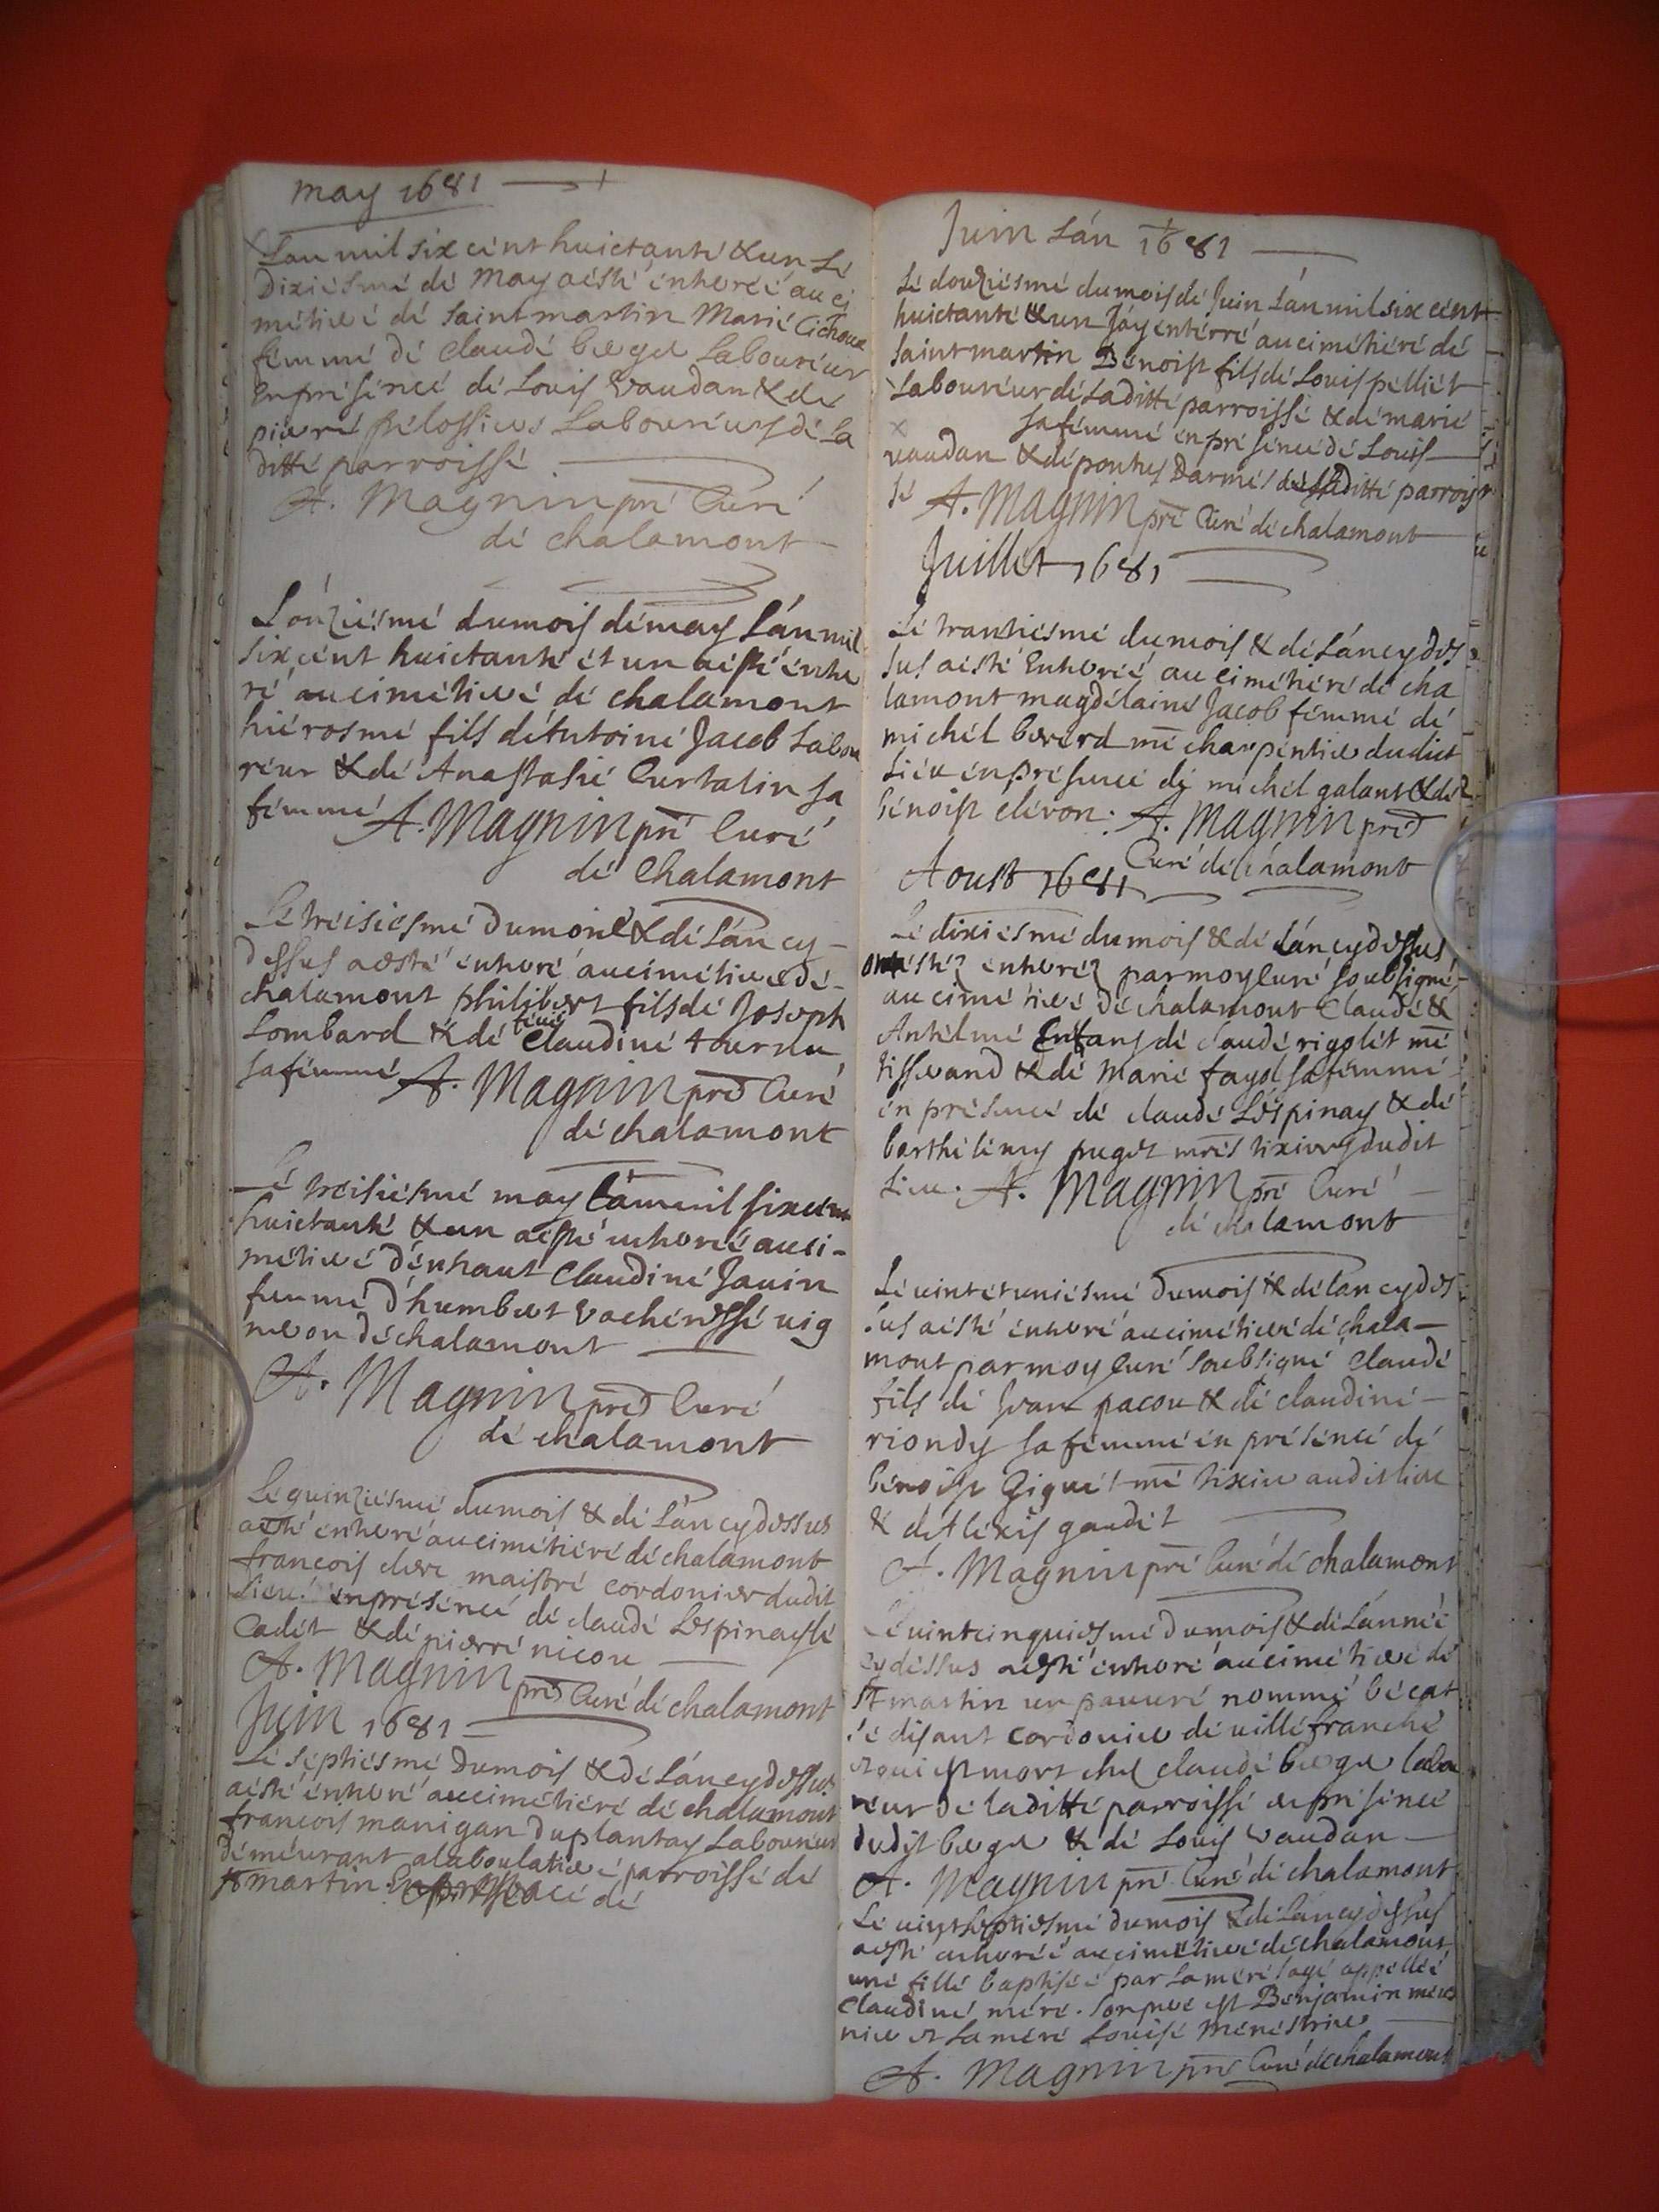 may 1681
Lan mil six cent huictante & un Le
Dixiesme de May a esté enterée au ci
metiere de saint martin Marie Cichoux
femme de Claude berger Laboureur
En presence de Louis vaudan & de
pierre pelossieus Laboureurs de La
ditte parroisse
A. Magnin pre Curé
de chalamont
L'onziesme du mois de may L'an mil
six cent huictante et un a esté ente
ré au cimetiere de chalamont
hierosme fils d'Antoine Jacob Labou
reur & de Anastasie Curtalin sa
femme A. Magnin pre Curé
de Chalamont
Le treisiesme du mois & de L'an cy
dessus a esté enteré au cimetiere de
chalamont philibert fils de Joseph
Lombard & de Claudine tournu
sa femme A. Magnin pre Curé
de chalamont
Le treisiesme may L'an mil six cent
huictante & un a esté enterée au ci-
metiere d'enhaut Claudine Janin
femme d'humbert vacheresse vig
neron de chalamont
A. Magnin pre Curé
de chalamont
Le quinziesme du mois & de L'an cy dessus
a esté enteré au cimetiere de chalamont
francois clerc maistre cordonier dudit
Lieu en presence de claude Lespinay le
Cadet & de pierre nicou
A. Magnin pre Curé de chalamont
Juin 1681
Le septiesme du mois & de L'an cy dessus
a esté enteré au cimetiere de chalamont
francois manigan du plantay Laboureur
demeurant a la boulatiere parroisse de
St martin En presence de
Juin L'an 1681
Le douziesme du mois de Juin L'an mil six cent
huictante & un J'ay enterré au cimetiere de
saint martin Benoist fils de Louis pelliet
Laboureur de La ditte parroisse & de marie
sa femme en presence de Louis
vaudan & de ponthus Darmes de La ditte parrois
se A. Magnin pre Curé de chalamont
Juillet 1681
Le trantiesme du mois & de L'an cy des
sus a esté Enterée au cimetiere de cha
lamont magdelaine Jacob femme de
michel bererd me charpentier dudict
Lieu en presence de michel galant & de
benoist cleron. A. Magnin pre
Curé de chalamont
Aoust 1681
Le dixiesme du mois & de L'an cy dessus
ont estez enterez par moy Curé soubsigné
au cimetiere de chalamont Claude &
Antelme Enfans de claude rigolet me
tisserand & de Marie fayol sa femme
en presence de claude Lespinay & de
barthelemy puget mres tixiers dudit
Lieu. A. Magnin pre Curé
de chalamont
Le vint et uniesme du mois & de l'an cy des
sus a esté enteré au cimetiere de chala-
mont par moy Curé soubsigné Claude
fils de Jean pacou & de claudine
riondy sa femme en presence de
benoist Gignet me tixier audit lieu
& d'Alexis gaudet
A. Magnin pre Curé de chalamont
Le vintcinquiesme du mois & de L'année
cy dessus a esté enteré au cimetiere de
St martin un pauvre nommé becat
se disant cordonier de villefranche
et qui est mort chez claude berger labou
reur de la ditte parroisse en presence
dudit berger & de Louis vaudan
A. Magnin pre Curé de chalamont
Le vint septiesme du mois & de L'an cy dessus
a esté enterée au cimetiere de chalamont
une fille baptisée par La mere sage appellée
Claudine mere. son pere est Benjamin meus
nier et La mere Louise Menestrier
A. Magnin pre Curé de chalamont